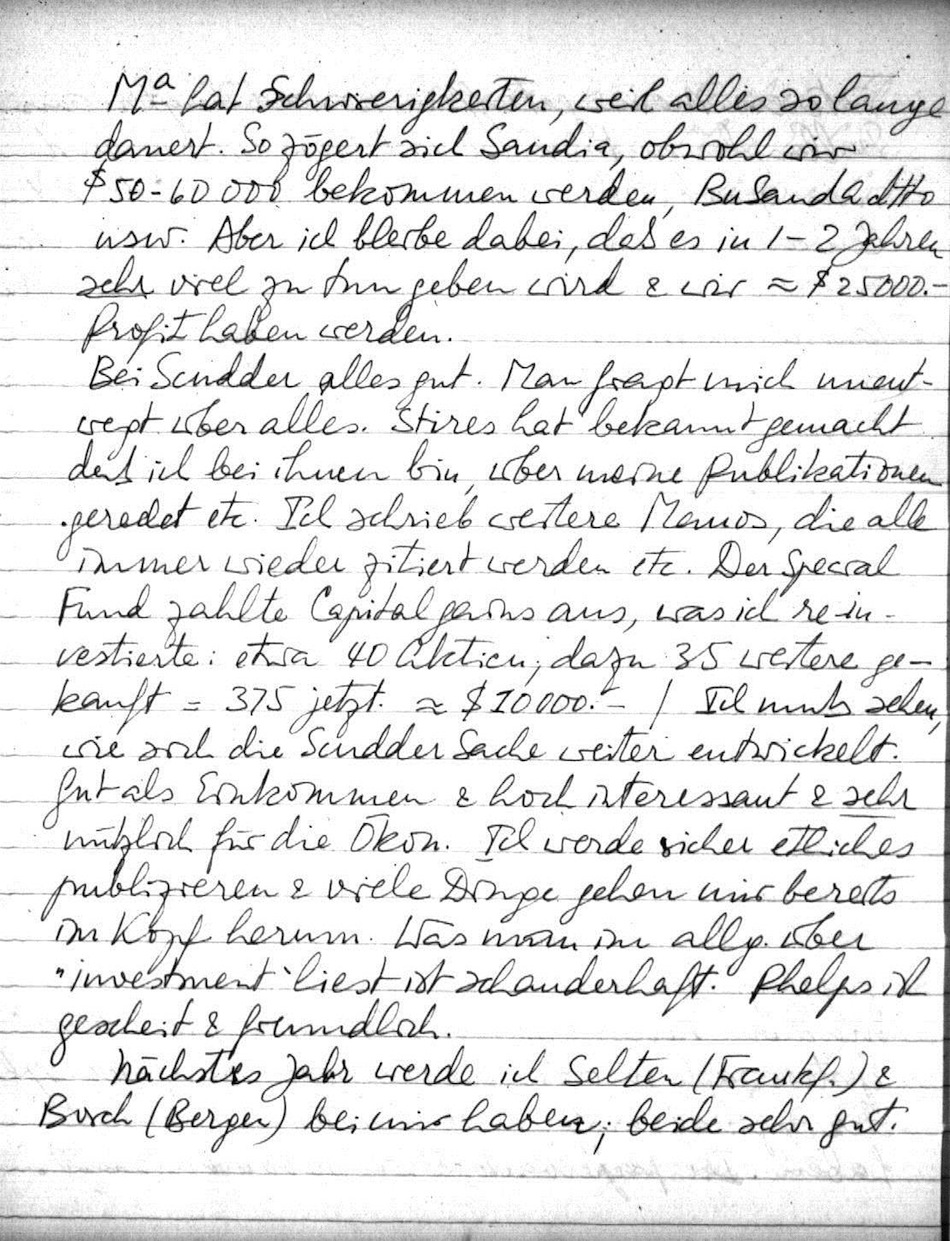 Ma hat Schwierigkeiten, weil alles so lange
dauert. So zögert sich Sandia, obwohl wir
$50-60000 bekommen werden, BuSanda ditto
usw. Aber ich bleibe dabei, daß es in 1-2 Jahren
sehr viel zu tun geben wird & wir ≈ $25000.-
Profit haben werden.
Bei Scudder alles gut. Man fragt mich unent-
wegt über alles. Stires hat bekannt gemacht
daß ich bei ihnen bin, über meine Publikationen
geredet etc. Ich schrieb weitere Memos, die alle
immer wieder zitiert werden etc. Der Special
Fund zahlte Capital gains aus, was ich re-in-
vestierte: etwa 40 Aktien; dazu 35 weitere ge-
kauft = 375 jetzt. ≈ $10000.- / Ich muß sehen,
wie sich die Scudder Sache weiter entwickelt.
Gut als Einkommen & hoch interessant & sehr
nützlich für die Ökon. Ich werde sicher etliches
publizieren & viele Dinge gehen mir bereits
im Kopf herum. Was man im allg. über
"investment" liest ist schauderhaft. Phelps ist
gescheit & freundlich.
Nächstes Jahr werde ich Selten (Frankf.) &
Borch (Bergen) bei mir haben; beide sehr gut.